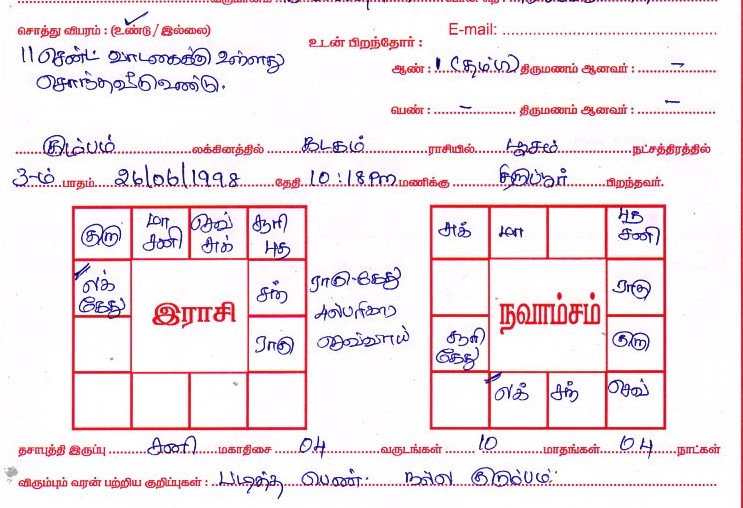 சொத்து விபரம் : (உண்டு / இல்லை)
E-mail:
11 சென்ட் வாடகைக்கு உள்ளது
உடன் பிறந்தோர் :
சொந்தவீடு உண்டு.
ஆண் : 1 (தம்பி) திருமணம் ஆனவர் : –
பெண் : – திருமணம் ஆனவர் : –
கும்பம் லக்கினத்தில் கடகம் ராசியில் பூசம் நட்சத்திரத்தில்
3-ம் பாதம் 26/06/1998 தேதி 10:18 PM மணிக்கு திருப்பூர் பிறந்தவர்.
குரு மா சனி செவ் சுக் சூரி புத
சுக் மா புத சனி
லக் கேது இராசி சந் ராகு-கேது நவாம்சம் ராகு
ராகு செவ்வாய் சூரி கேது குரு
லக் சந் செவ்
தசாபுத்தி இருப்பு சனி மகாதிசை 04 வருடங்கள் 10 மாதங்கள் 04 நாட்கள்
விரும்பும் வரன் பற்றிய குறிப்புகள் : படித்த பெண். நல்ல குடும்பம்